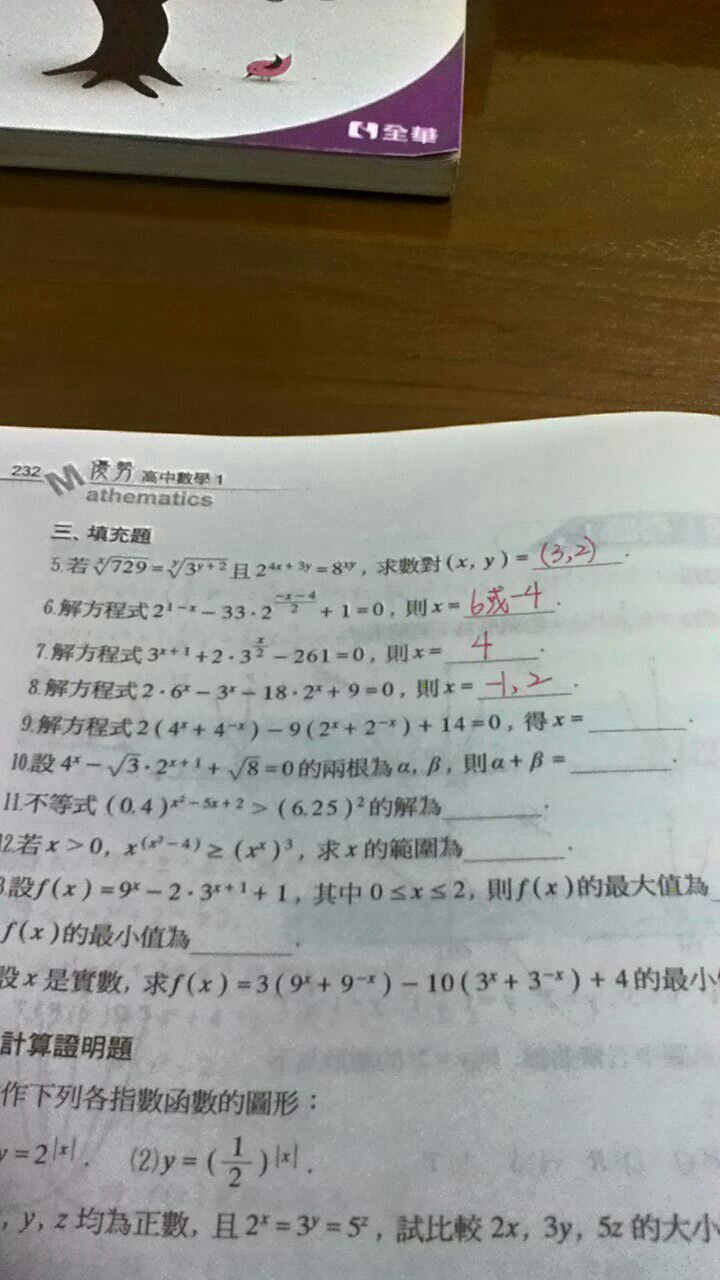 全華
232 M 優勢 高中數學 1
athematics
三、填充題
5.若 ∛729 = ʸ√3^(y+2) 且 2^(4x+3y) = 8^(xy), 求數對 (x, y) = (3,2).
6.解方程式 2^(1-x) - 33·2^((-x-4)/2) + 1 = 0, 則 x = 6或-4.
7.解方程式 3^(x+1) + 2·3^(x/2) - 261 = 0, 則 x = 4.
8.解方程式 2·6^x - 3^x - 18·2^x + 9 = 0, 則 x = -1, 2.
9.解方程式 2(4^x + 4^(-x)) - 9(2^x + 2^(-x)) + 14 = 0, 得 x = ______.
10.設 4^x - √3·2^(x+1) + √8 = 0 的兩根為 α, β, 則 α + β = ______.
11.不等式 (0.4)^(x²-5x+2) > (6.25)² 的解為______.
12.若 x > 0, x^(x²-4) ≥ (x^x)³, 求 x 的範圍為______.
3.設 f(x) = 9^x - 2·3^(x+1) + 1, 其中 0 ≤ x ≤ 2, 則 f(x) 的最大值為
f(x) 的最小值為______.
設 x 是實數, 求 f(x) = 3(9^x + 9^(-x)) - 10(3^x + 3^(-x)) + 4 的最小
計算證明題
作下列各指數函數的圖形：
y = 2^|x|. (2) y = (1/2)^|x|.
, y, z 均為正數, 且 2^x = 3^y = 5^z, 試比較 2x, 3y, 5z 的大小